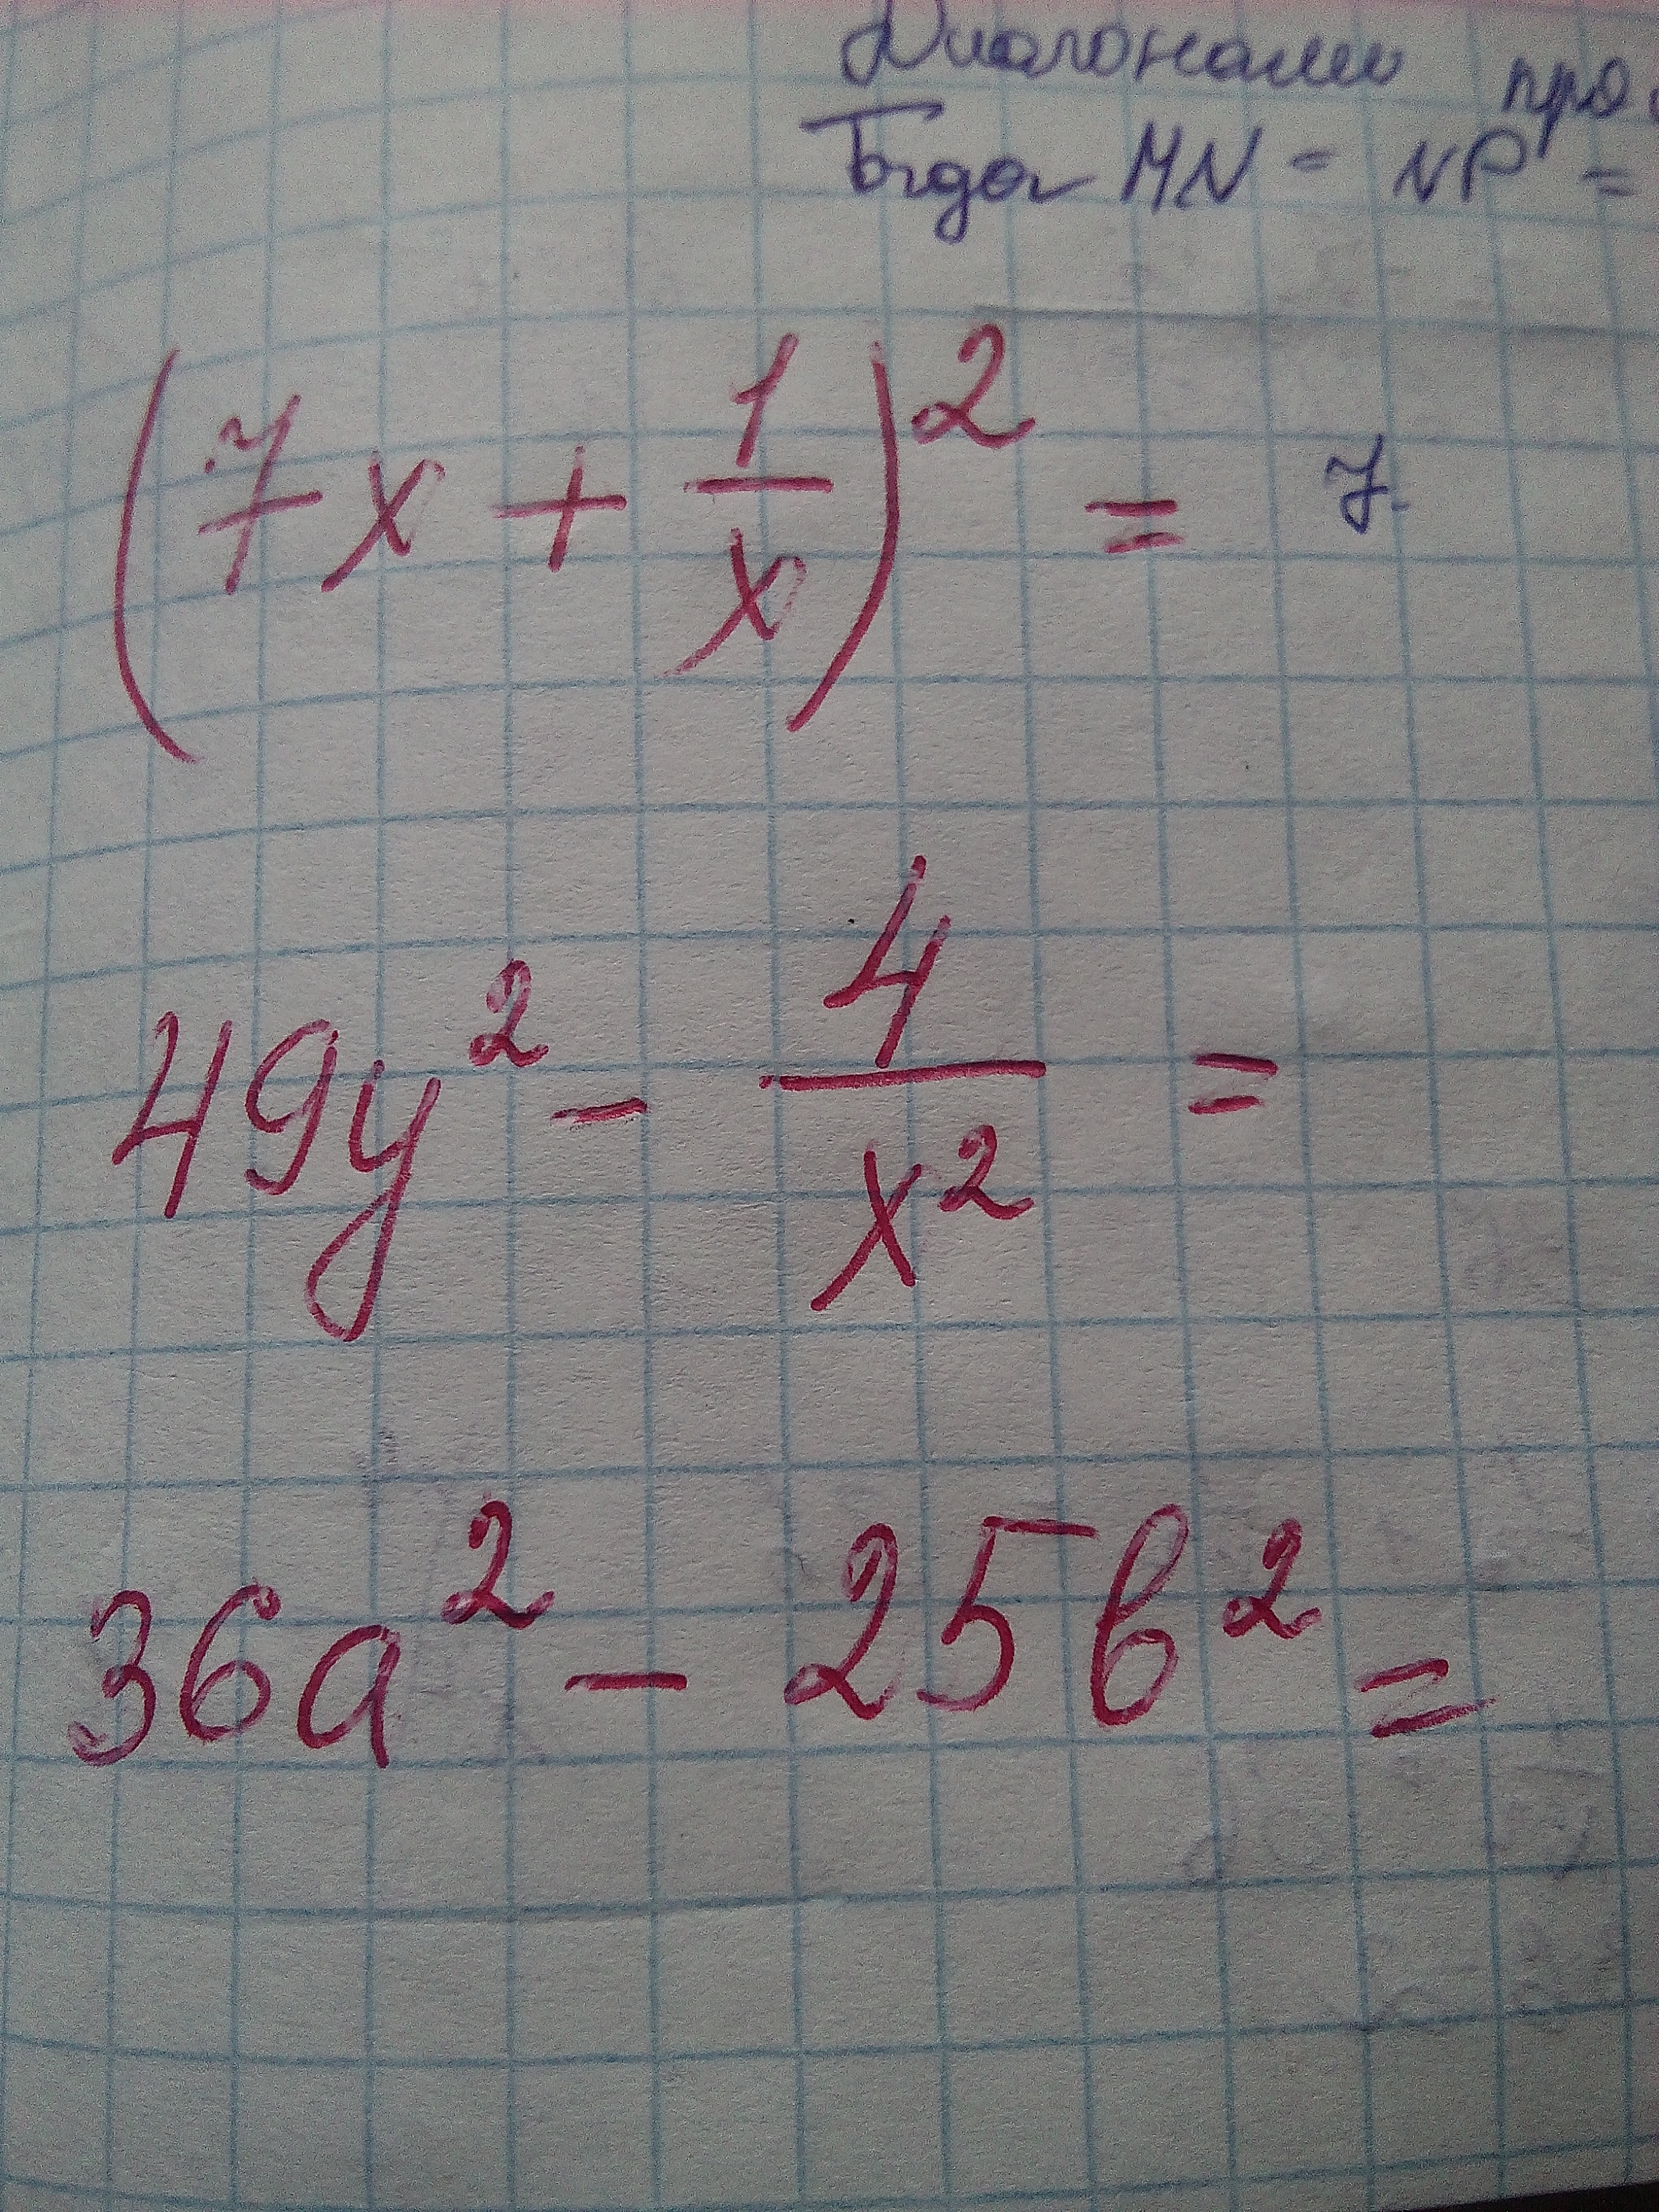 Диагонали
Тогда MN = NP =
(7x + 1/x)² = 7
49y² - 4/x² =
36a² - 25b² =